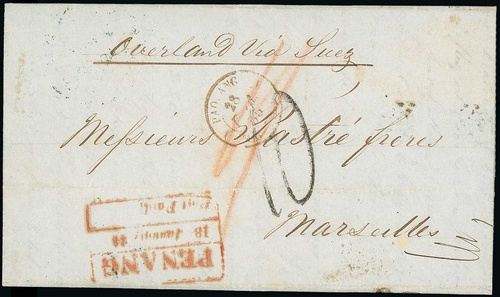 Overland Via Suez
PAQ. ANG.
28
Messieurs Pastré frères
10
Marseilles
PENANG
18 January
Post Paid